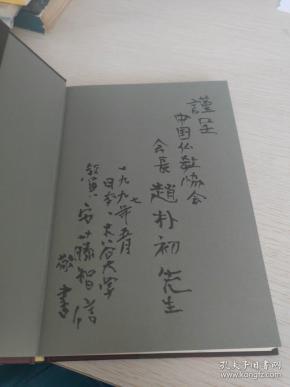 謹呈
中国仏教協会
会長 趙朴初先生
一九九七年五月
日本・大谷大学
教員 安藤智信
敬書
孔夫子旧书网